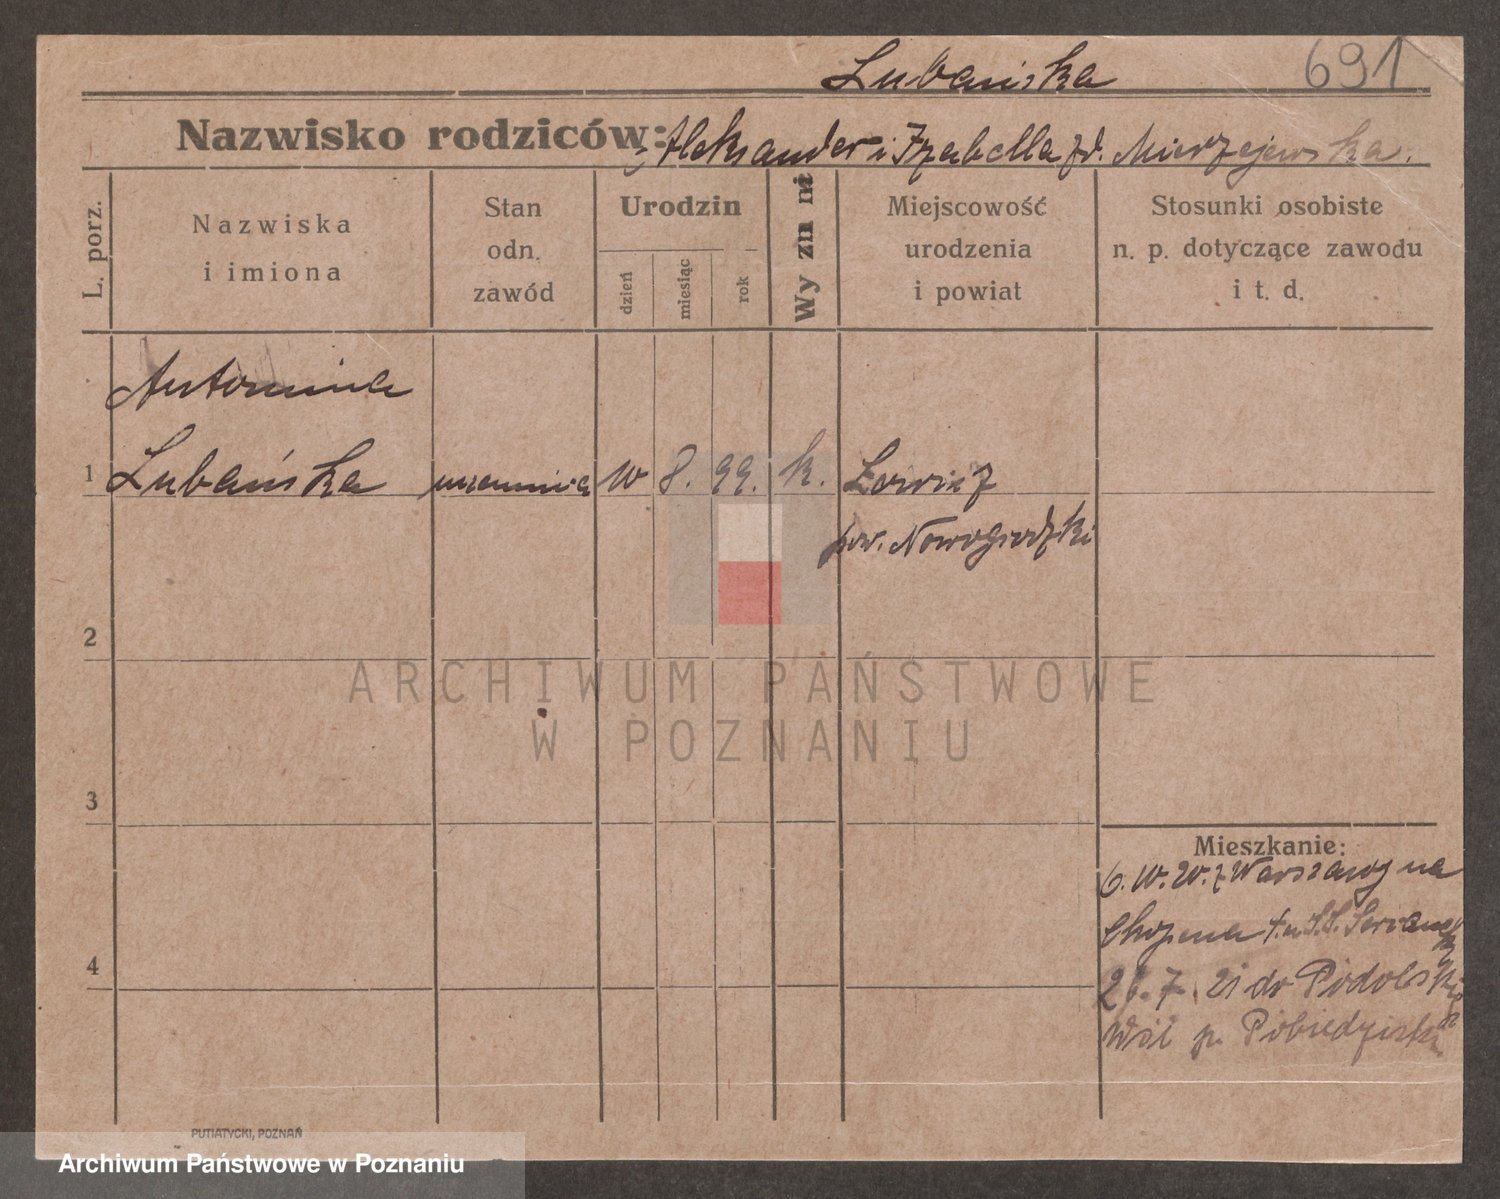 Lubańska
691
Nazwisko rodziców: Aleksander i Izabella zd. Mierzejewska.
L. porz.
Nazwiska
i imiona
Stan
odn.
zawód
Urodzin
dzień
miesiąc
rok
Wyznani
Miejscowość
urodzenia
i powiat
Stosunki osobiste
n. p. dotyczące zawodu
i t. d.
Antonina
1 Lubańska uczennica 10 8. 99. k. Łowicz
pow. Nowogrodzki
2
3
Mieszkanie:
6. 10. 20. z Warszawy na
Chopena
4
26. 7. 21 do Podolski
Wól p. Pobiedziska
ARCHIWUM PAŃSTWOWE
W POZNANIU
PUTIATYCKI, POZNAŃ
Archiwum Państwowe w Poznaniu